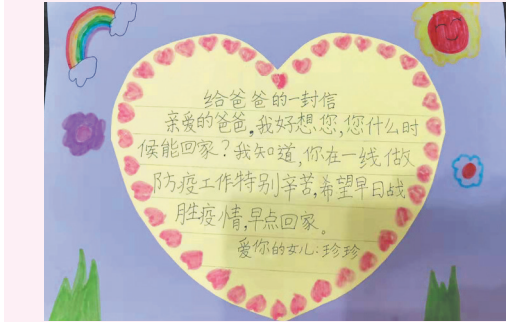 给爸爸的一封信
亲爱的爸爸,我好想您,您什么时
候能回家?我知道,你在一线做
防疫工作特别辛苦,希望早日战
胜疫情,早点回家。
爱你的女儿:珍珍